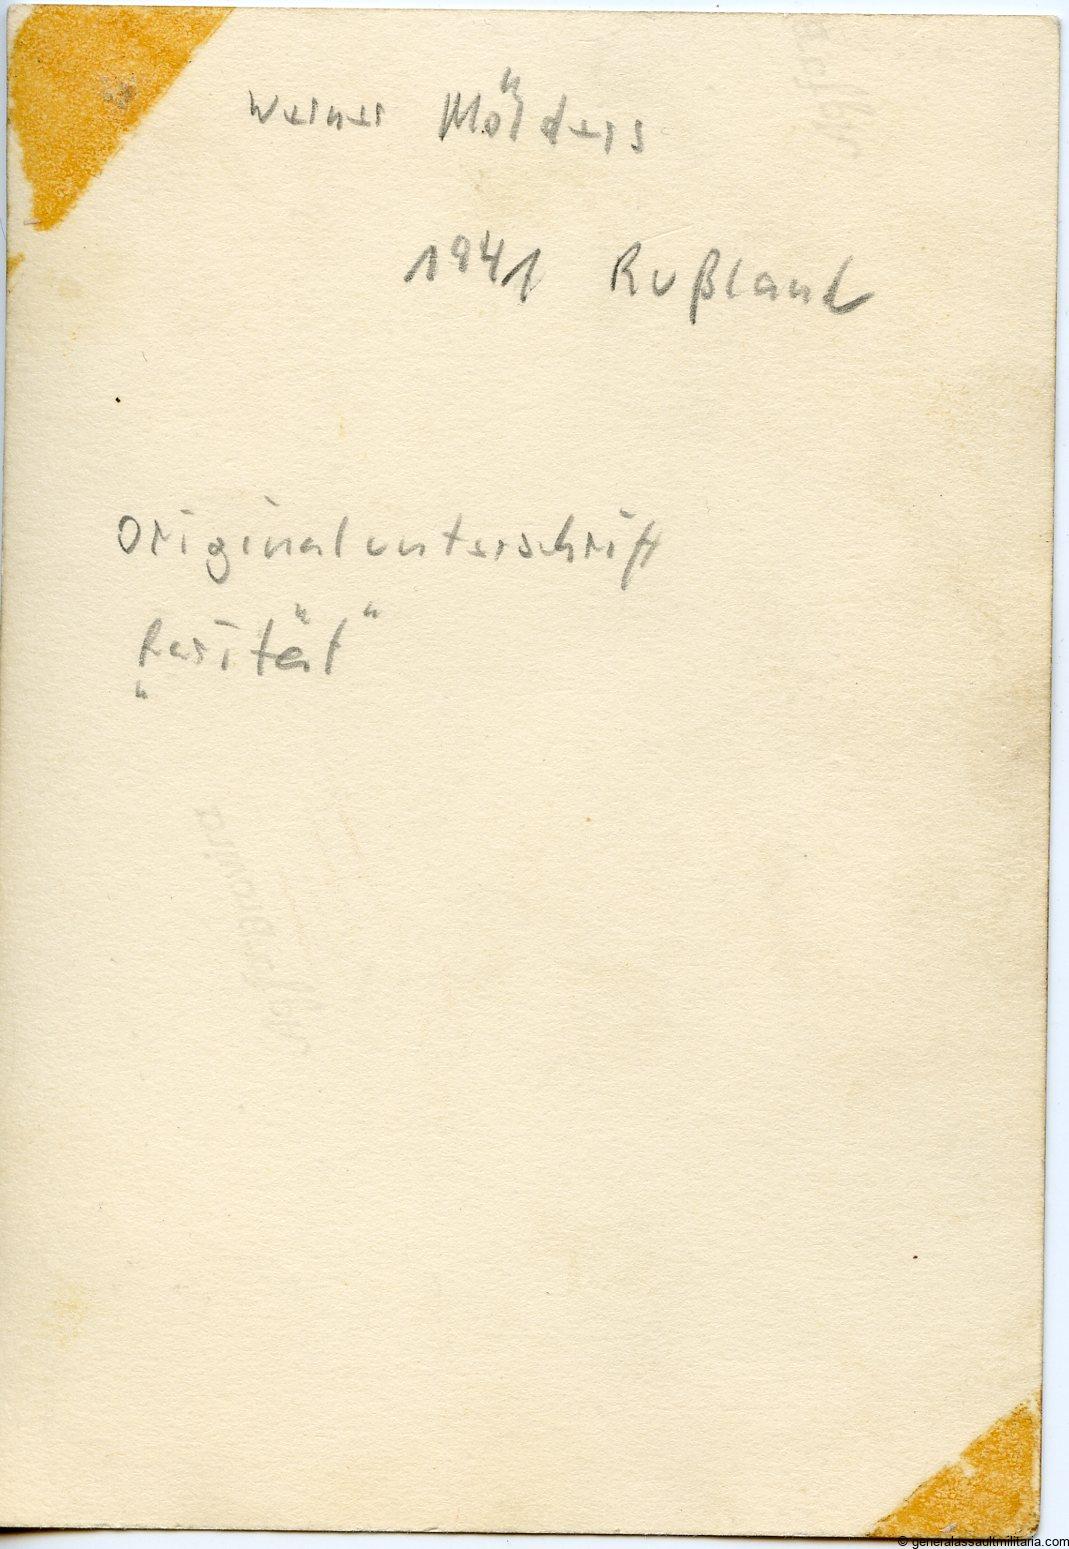 Werner Mölders
1941 Rußland
Originalunterschrift
„Rarität“
© generalassaultmilitaria.com